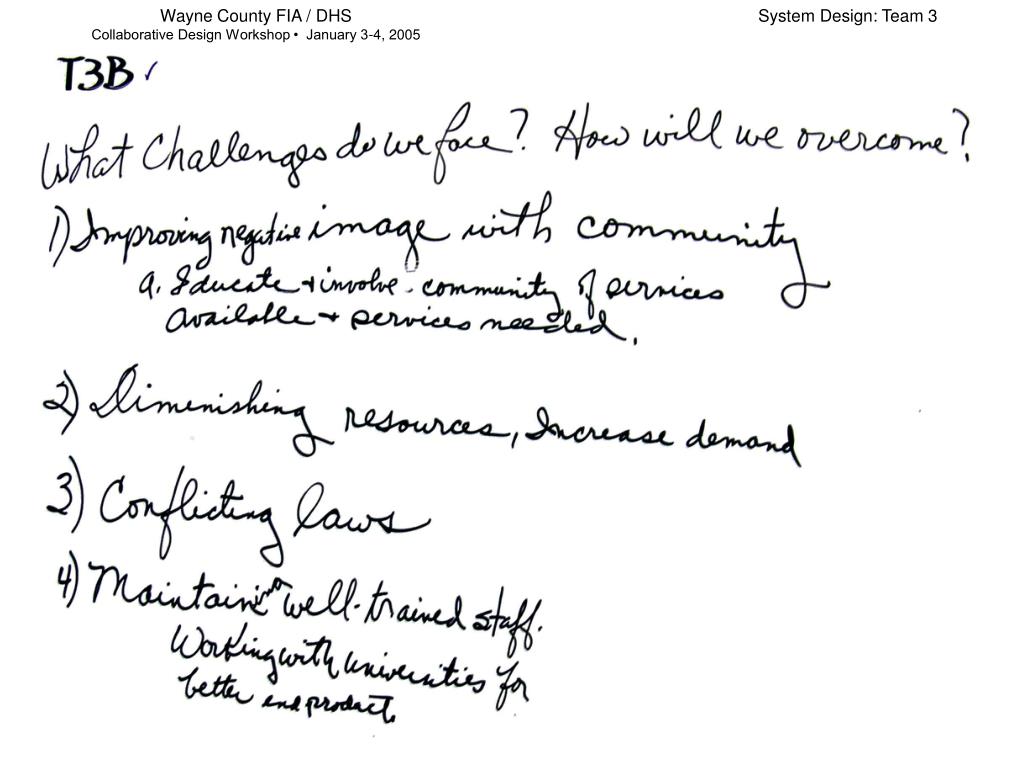 Wayne County FIA / DHS
System Design: Team 3
Collaborative Design Workshop • January 3-4, 2005
T3B ✓
What Challenges do we face? How will we overcome?
1) Improving negative image with community
a. Educate + involve community of services
available + services needed.
2) Diminishing resources, Increase demand
3) Conflicting laws
4) Maintaining well-trained staff.
Working with universities for
better end product.